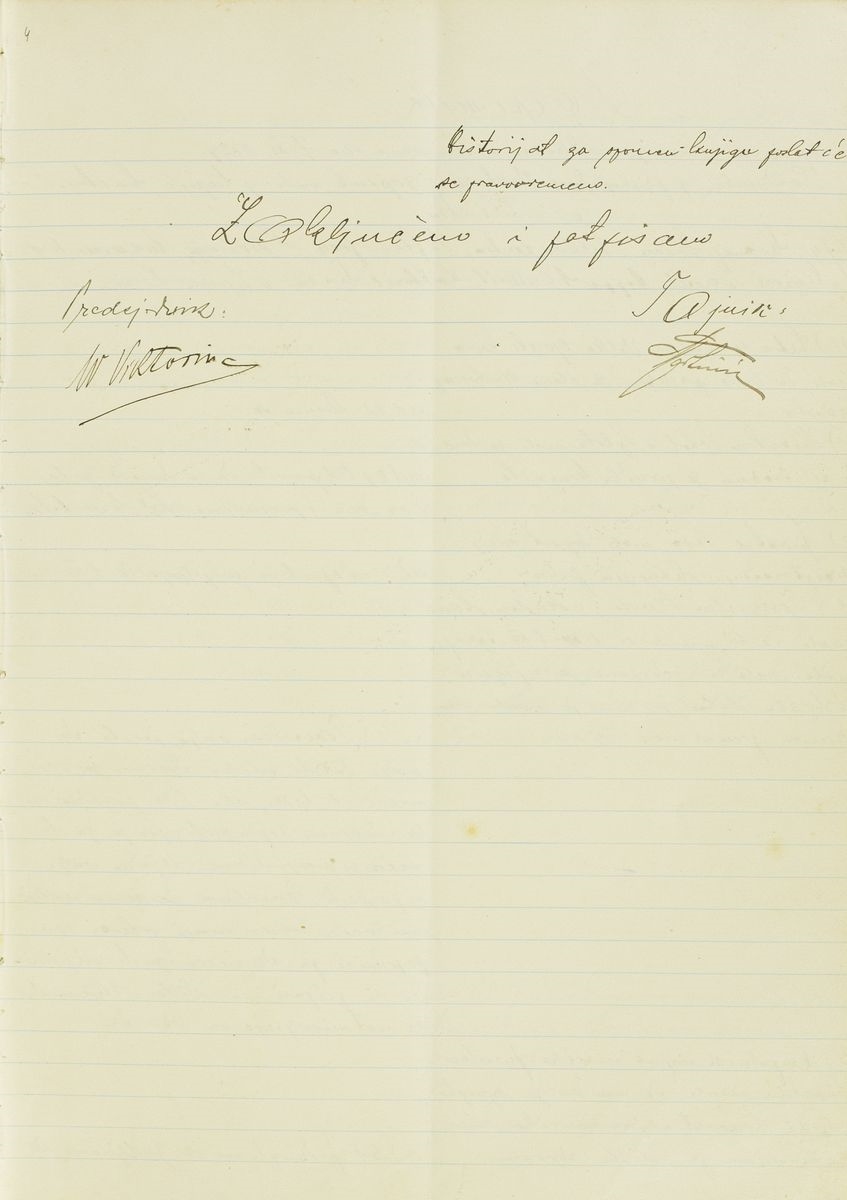 4
Historijat za spomen-knjigu poslat će
se pravovremeno.
Zaključeno i potpisano
Predsjednik:
Tajnik:
W Viktorin